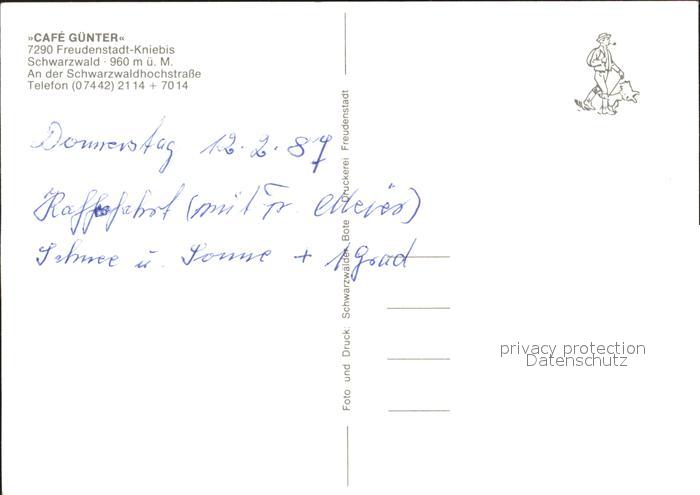 »CAFÉ GÜNTER«
7290 Freudenstadt-Kniebis
Schwarzwald · 960 m ü. M.
An der Schwarzwaldhochstraße
Telefon (07442) 2114 + 7014
Donnerstag 12.2.87
Kaffeefahrt (mit Fr.
Schnee u. Sonne + 1 Grad
Foto und Druck: Schwarzwälder Bote Druckerei Freudenstadt
privacy protection
Datenschutz